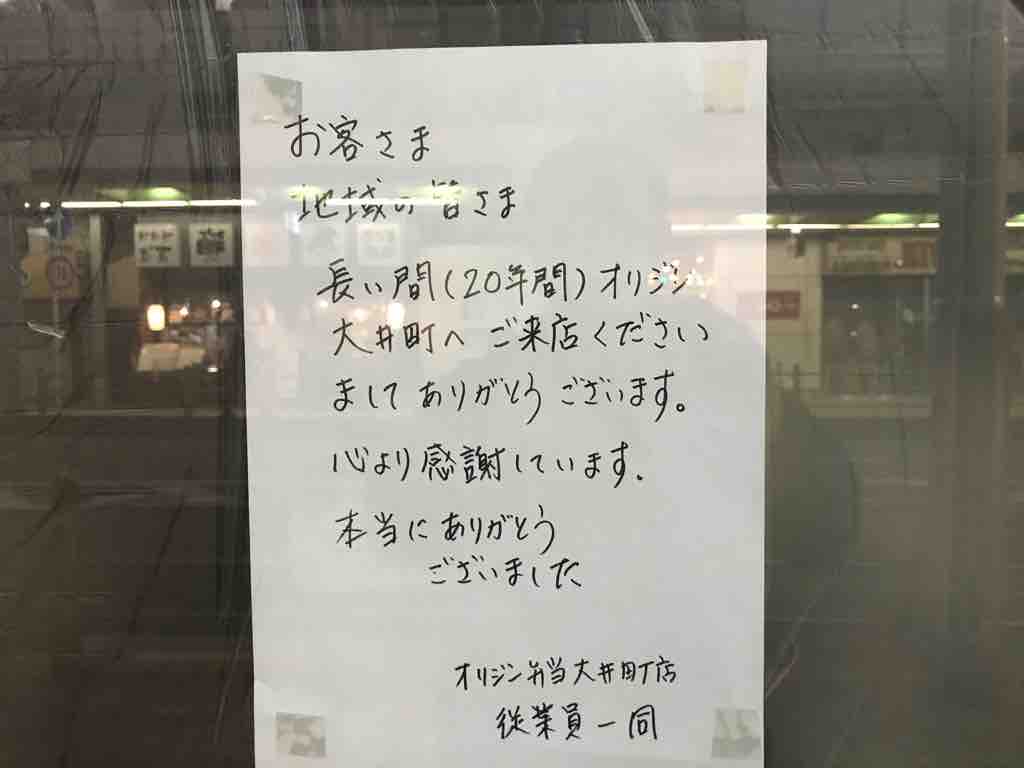 お客さま
地域の皆さま
長い間(20年間)オリジン
大井町へご来店ください
ましてありがとうございます。
心より感謝しています.
本当にありがとう
ございました
オリジン弁当大井町店
従業員一同